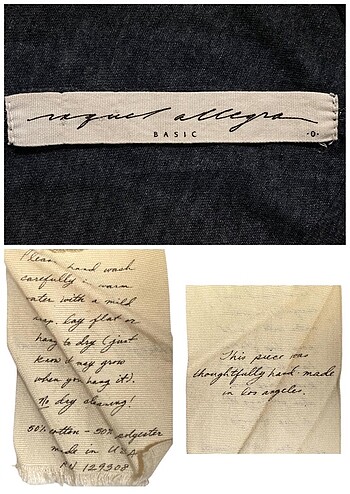 raquel allegra
BASIC
·0·
Please hand wash
carefully in warm
water with a mild
soap. Lay flat or
hang to dry (just
know it may grow
when you hang it).
No dry cleaning!
50% cotton - 50% polyester
made in USA
RN 129308
This piece was
thoughtfully hand-made
in Los Angeles.